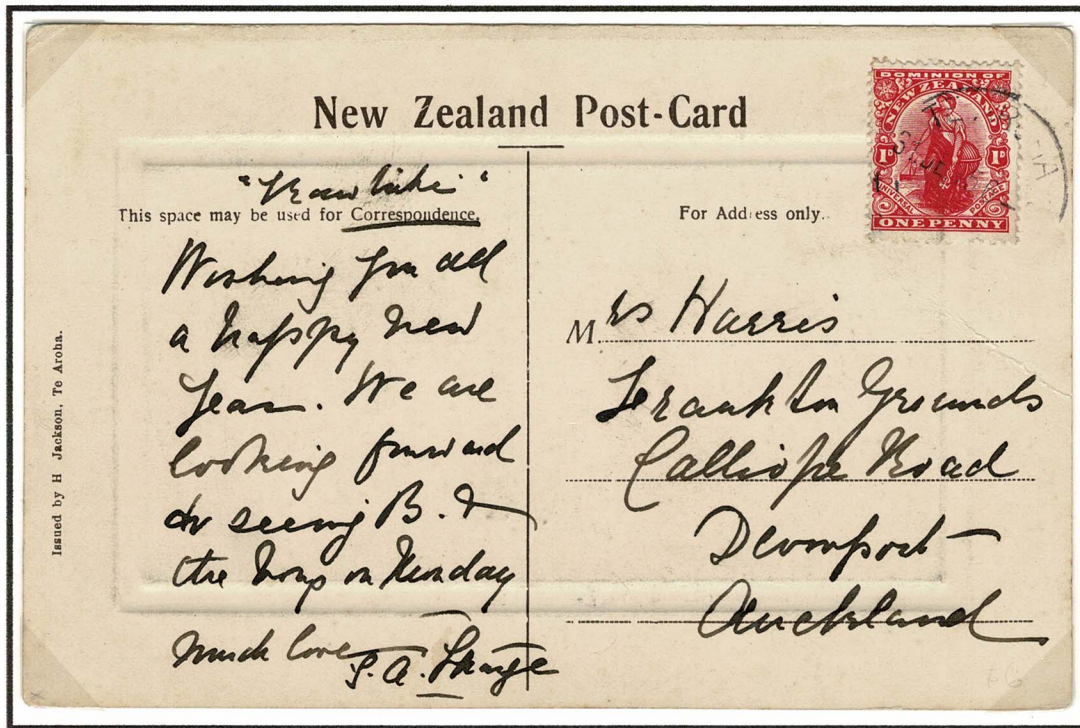 New Zealand Post-Card
This space may be used for Correspondence.
For Address only.
Wishing you all
a happy new
Year. We are
looking forward
to seeing B. &
the boys on Monday
much love
Mrs Harris
Frankton Grounds
Calliope Road
Devonport
Auckland
Issued by H Jackson, Te Aroha.
DOMINION OF
NEW ZEALAND
1D 1D
UNIVERSAL POSTAGE
ONE PENNY